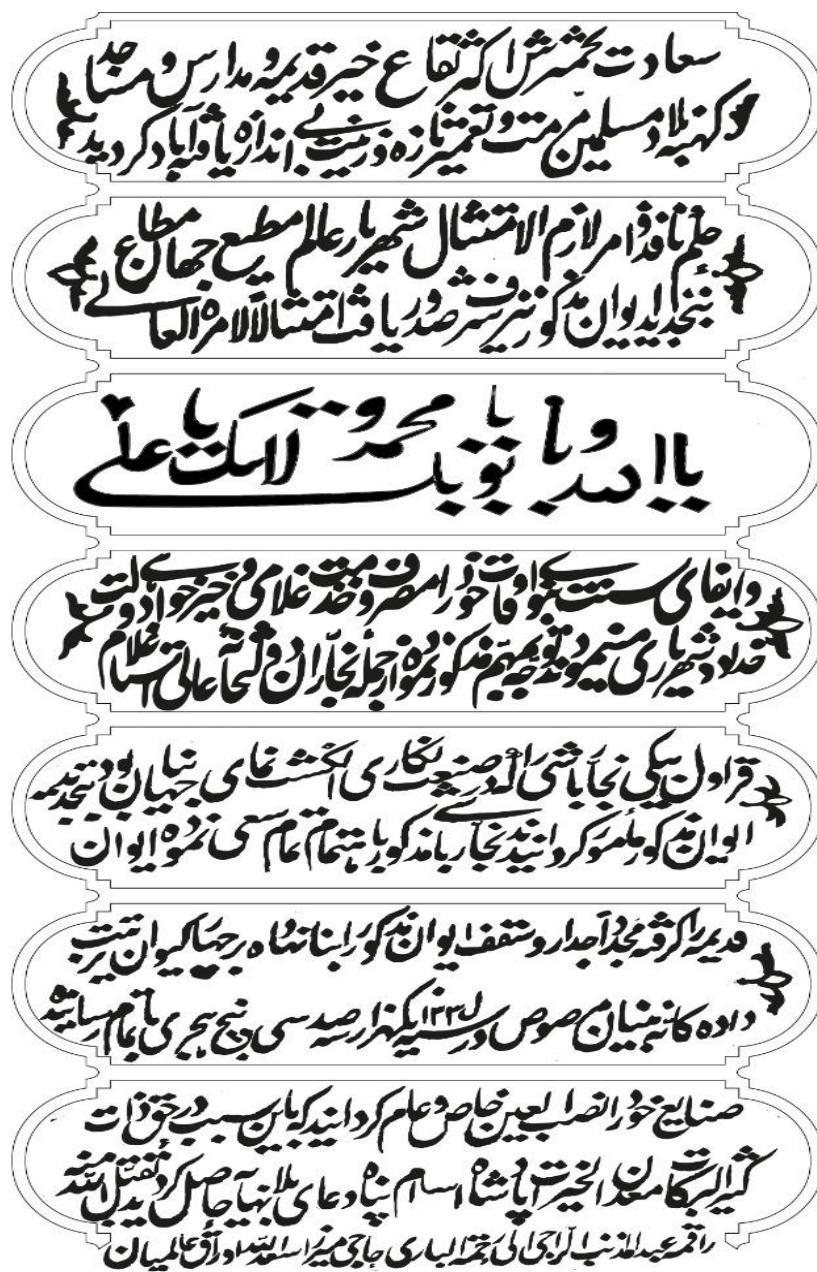 سعادت حشرش اکثر بقاع خیر قدیمه و مدارس و مساجد
کهنه بلاد مسلمین مرمت و تعمیر تازه و زینت بی اندازه یافته آباد کردید
حکم نافذ و امر لازم الامتثال شهریار عالم مطیع جهان مطاع
بتجدید ایوان مذکور نیز شرف صدور یافت امتثالا لامره العالی
یا الله و یا محمد و یا علی
و ایفای اوقات خود را مصروف خدمت غلامی و خیر خواه دولت
خداداد شهریاری مینمودند توجه بمهم مذکور نموده از جمله نجاران عالی
قراول بیکی نجار باشی را که در صنعت نکاری انکشت نمای جهانیان بود بتجدید
ایوان مذکور مامور کردانیدند نجار باشی مذکور باهتمام تمام سعی نموده ایوان
قدیمه را کرفته مجددا جدار و سقف ایوان مذکور را بنا نهاده برجهها کیوان ترتیب
داده کانه بنیان مرصوص در سنه ۱۳۳۵ یکهزار سه صد سی پنج هجری باتمام رسانیده
صنایع خود را نصب العین خاص و عام کردانید که باین سبب در حق ذات
کثیر البرکات معدن الخیرات پادشاه اسلام پناه دعای بلا نهایه حاصل کردید تقبل الله منه
راقمه عبد المذنب الراجی الی رحمة الباری حاجی میرزا